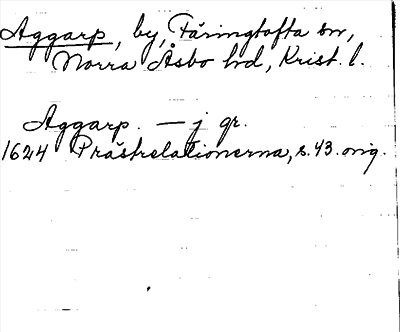 Aggarp, by, Färingtofta sn,
Norra Åsbo hd, Krist. l.
Aggarp. — j gr.
1624 Prästrelationerna, s. 43. orig.